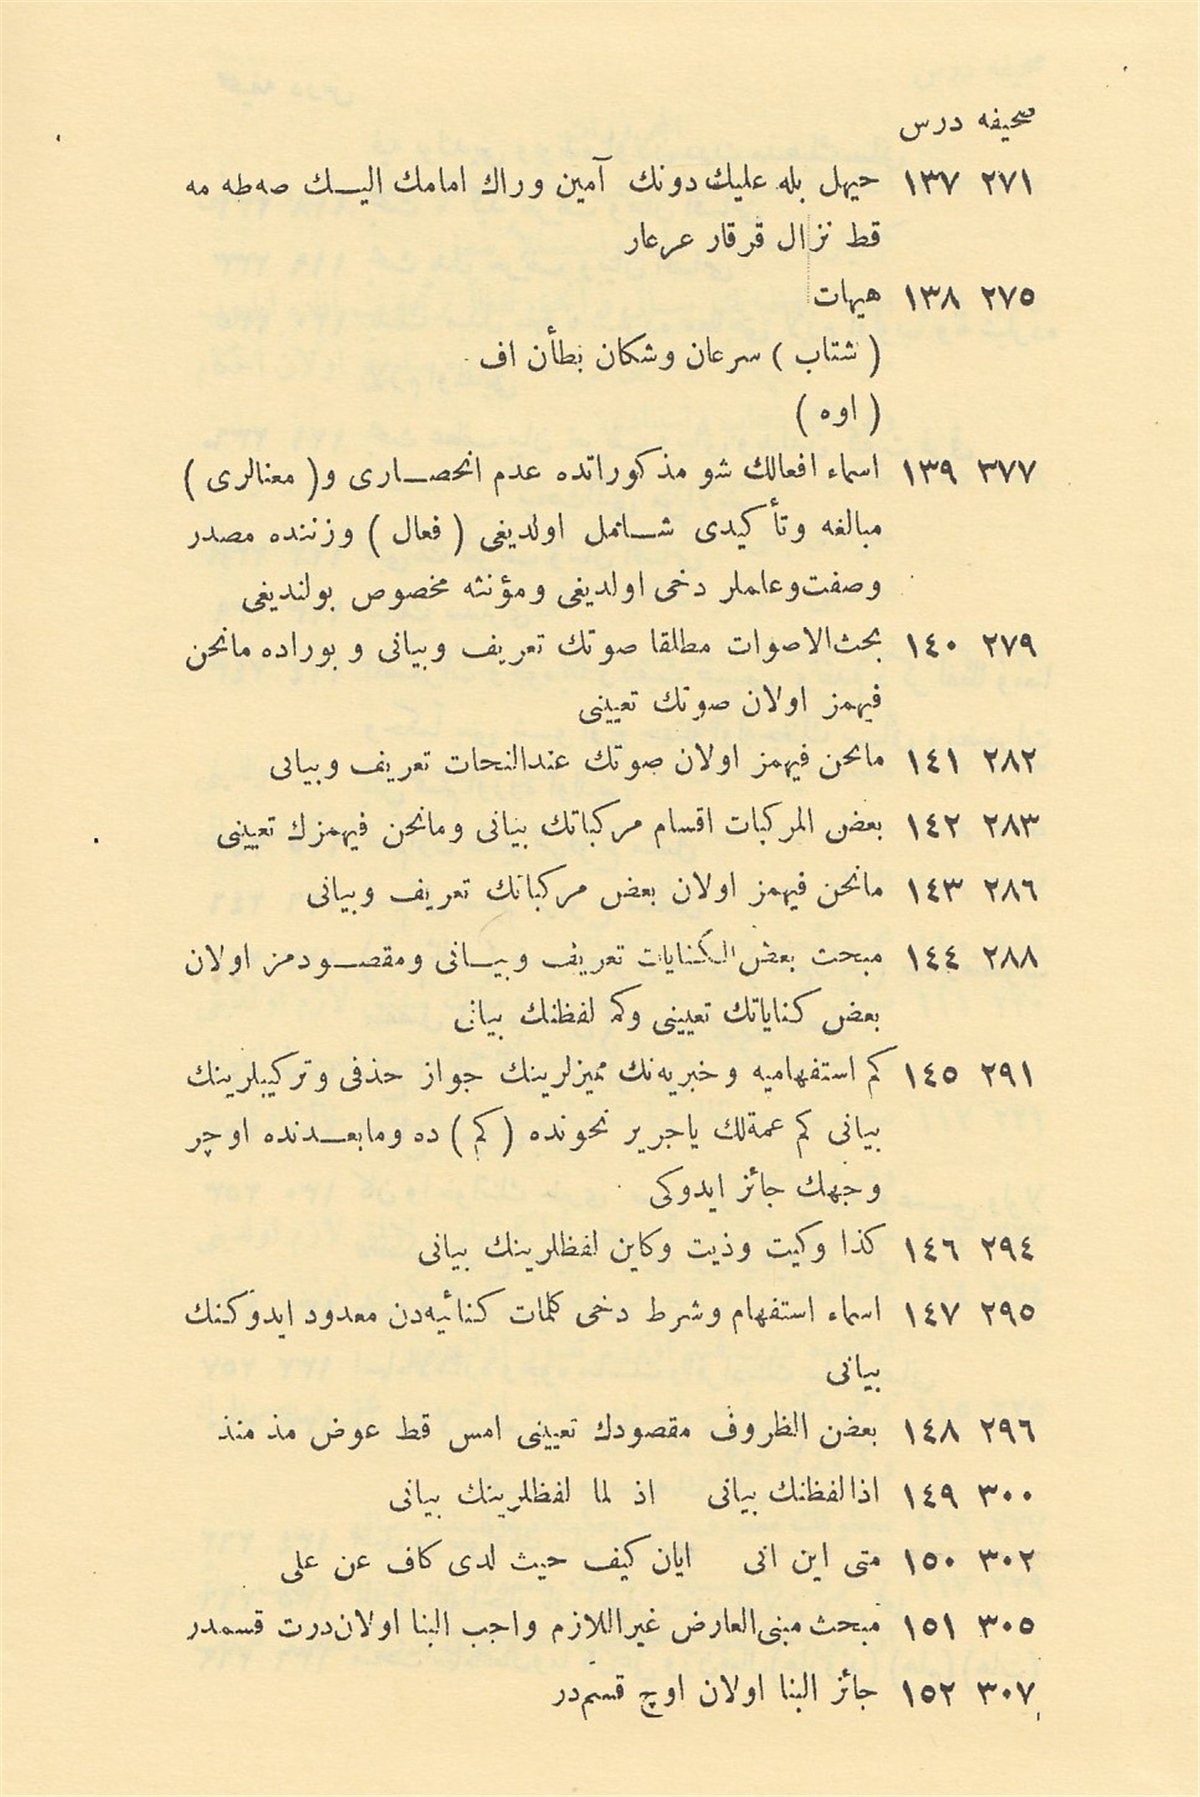 صحیفه درس
٢٧١ ١٣٧ حیهل بله علیك دونك آمین وراك امامك الیـك صه طه مه
قط نزال قرقار عرعار
٢٧٥ ١٣٨ هیهات
( شتاب ) سرعان وشكان بطأن اف
( اوه )
٣٧٧ ١٣٩ اسماء افعالك شو مذكوراتده عدم انحصـاری و( معنالری )
مبالغه وتأكیدی شـامل اولدیغی ( فعال ) وزننده مصدر
وصفت وعاملر دخی اولدیغی ومؤنثه مخصوص بولندیغی
٢٧٩ ١٤٠ بحث‌الاصوات مطلقا صوتك تعریف وبیانی و بوراده مانحن
فیهمز اولان صوتك تعیینی
٢٨٢ ١٤١ مانحن فیهمز اولان صوتك عندالنحات تعریف وبیانی
٢٨٣ ١٤٢ بعض المركبات اقسام مركباتك بیانی ومانحن فیهمزك تعیینی
٢٨٦ ١٤٣ مانحن فیهمز اولان بعض مركباتك تعریف وبیانی
٢٨٨ ١٤٤ مبحث بعض الكنایات تعریف وبیـانی ومقصـودمز اولان
بعض كنایاتك تعیینی وكم لفظنك بیانی
٢٩١ ١٤٥ كم استفهامیه وخبریه‌نك ممیزلرینك جواز حذفی وتركیبلرینك
بیانی كم عمةلك یاجریر نحونده ( كم ) ده ومابعـدنده اوچر
وجهك جائز ایدوكی
٢٩٤ ١٤٦ كذا وكیت وذیت وكاین لفظلرینك بیانی
٢٩٥ ١٤٧ اسماء استفهام وشرط دخی كلمات كنائیه‌دن معدود ایدوكنك
بیانی
٢٩٦ ١٤٨ بعض الظروف مقصودك تعیینی امس قط عوض مذ منذ
٣٠٠ ١٤٩ اذالفظنك بیانی اذ لما لفظلرینك بیانی
٣٠٢ ١٥٠ متی این انی ایان كیف حیث لدی كاف عن علی
٣٠٥ ١٥١ مبحث مبنی‌العارض غیراللازم واجب البنا اولان درت قسمدر
٣٠٧ ١٥٢ جائز البنا اولان اوچ قسم‌در